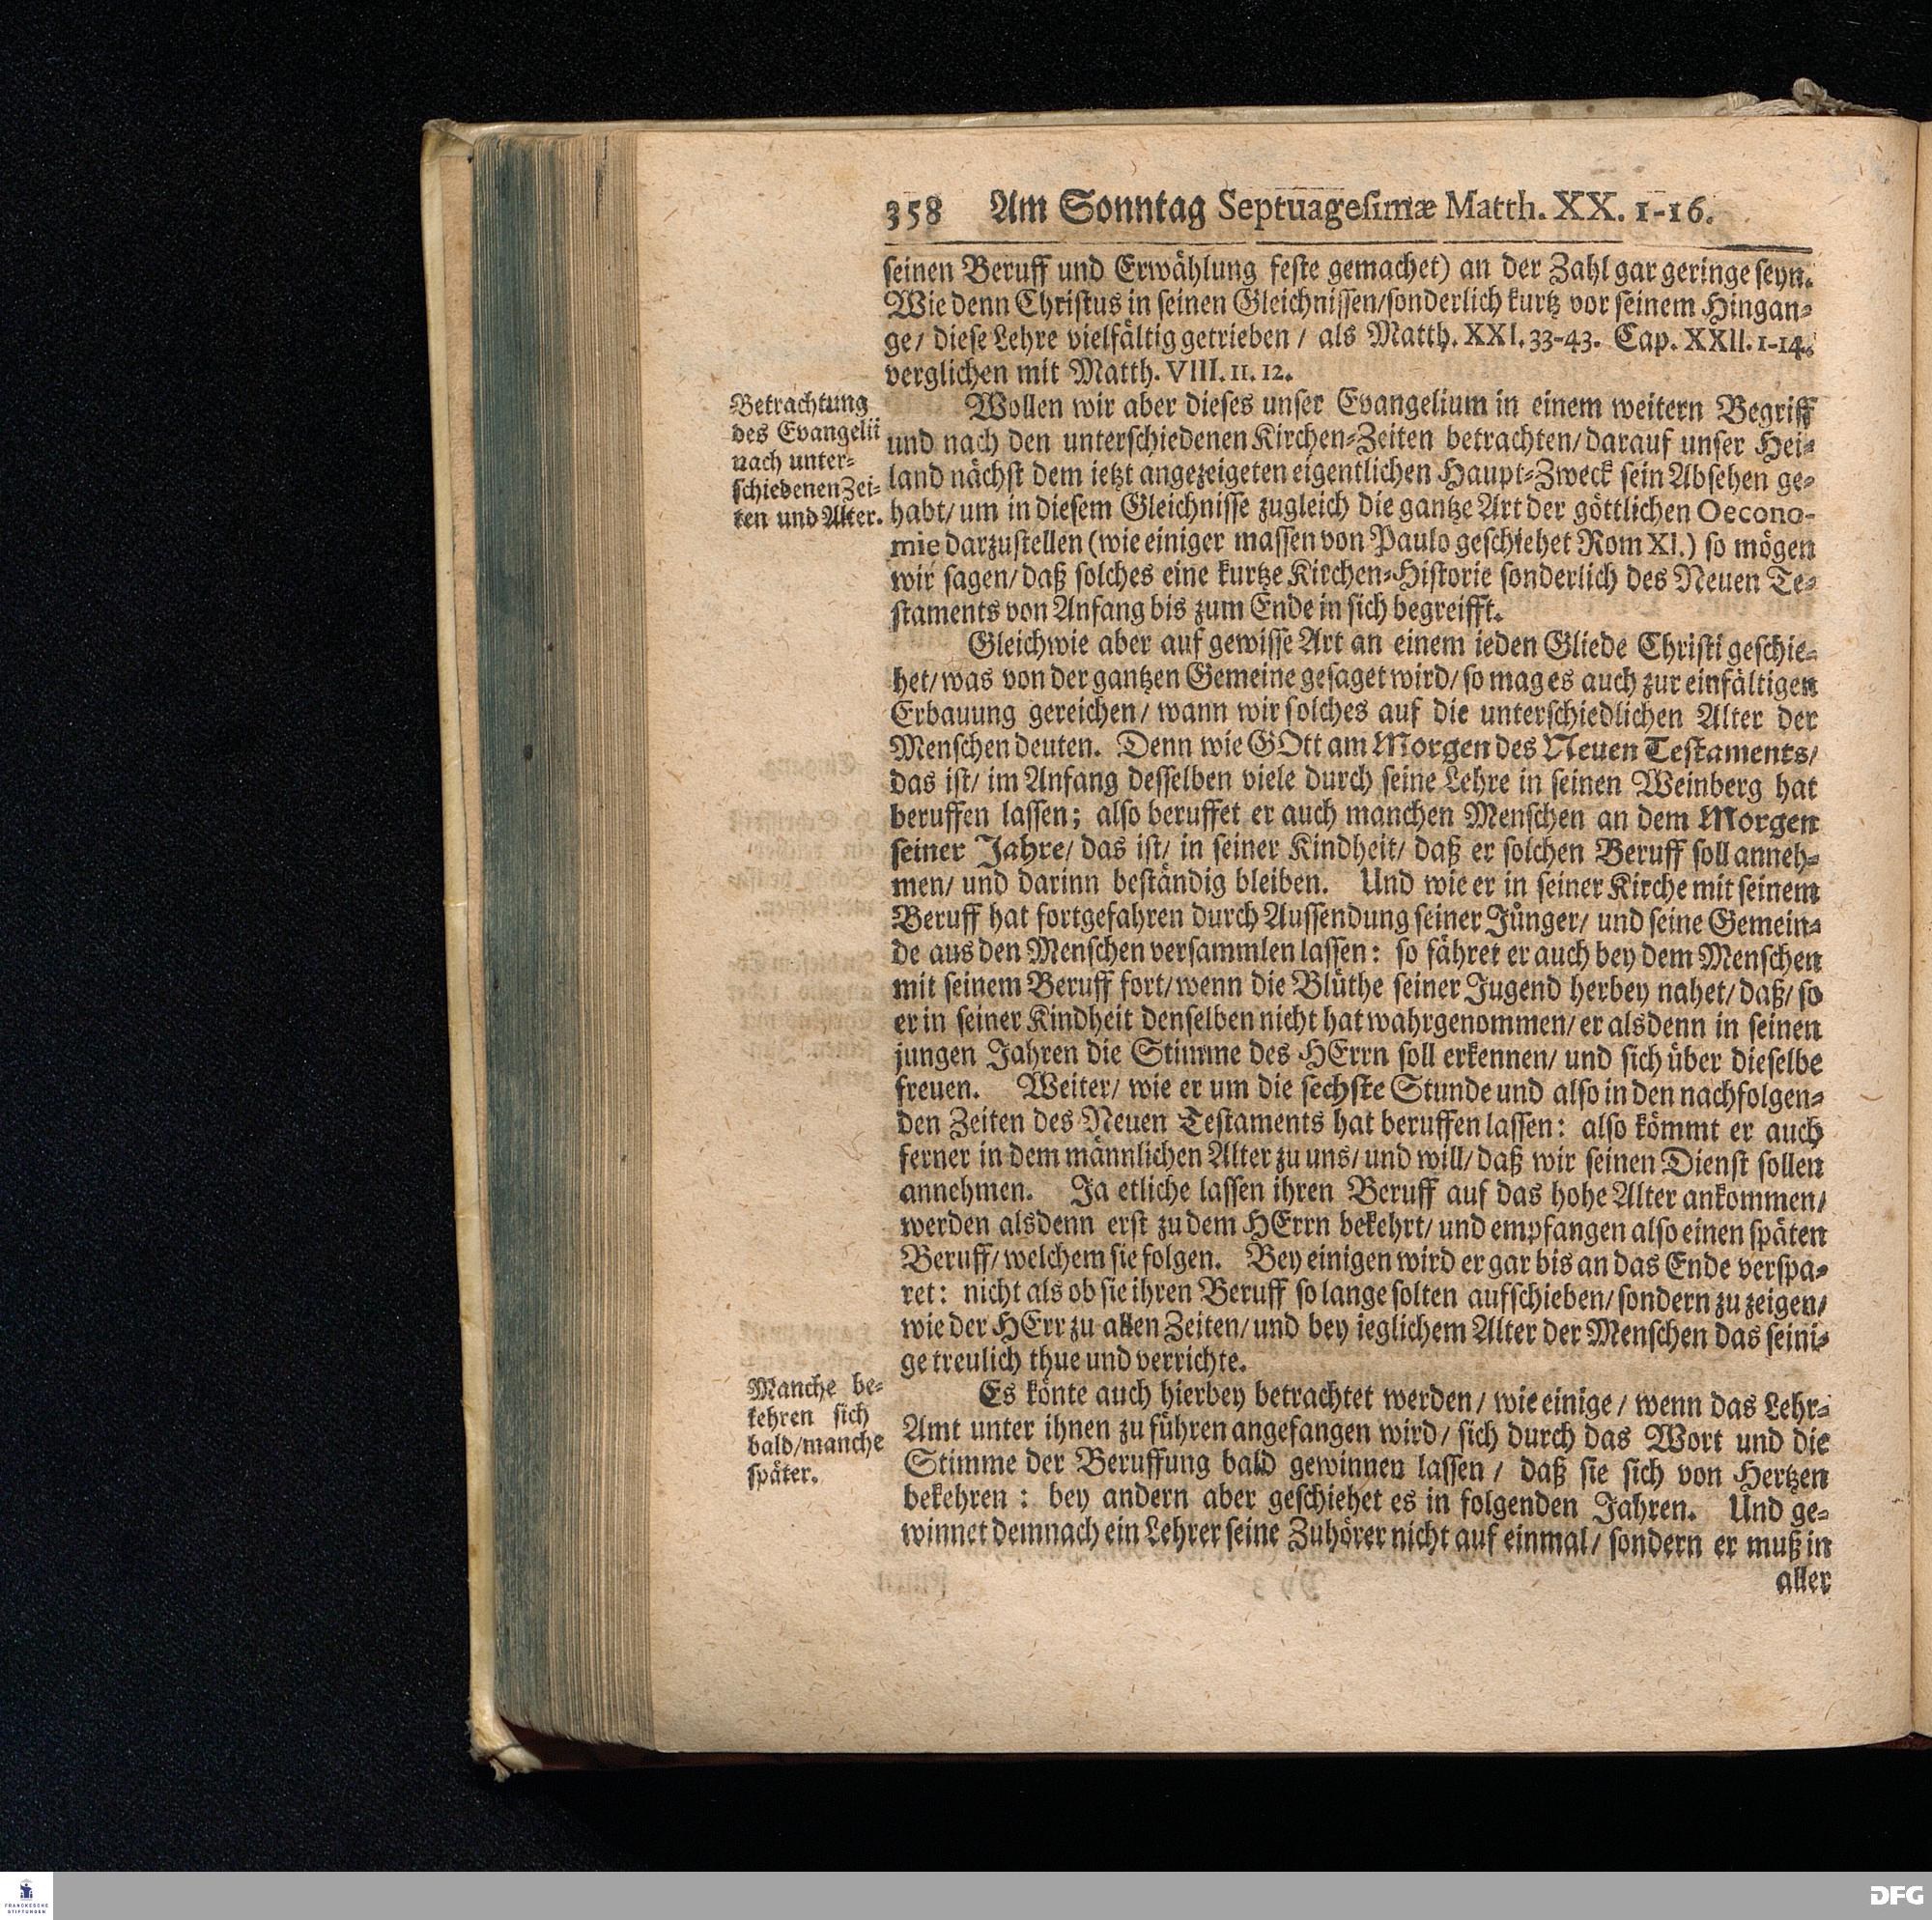 358 Am Sonntag Septuagesimæ Matth. XX. 1-16.
seinen Beruff und Erwählung feste gemachet) an der Zahl gar geringe seyn.
Wie denn Christus in seinen Gleichnissen/sonderlich kurtz vor seinem Hingan-
ge/ diese Lehre vielfältig getrieben / als Matth. XXI. 33-43. Cap. XXII. 1-14.
verglichen mit Matth. VIII. 11. 12.
Betrachtung
des Evangelii
nach unter-
schiedenen Zei-
ten und Alter.
Wollen wir aber dieses unser Evangelium in einem weitern Begriff
und nach den unterschiedenen Kirchen-Zeiten betrachten/ darauf unser Hei-
land nächst dem ietzt angezeigeten eigentlichen Haupt-Zweck sein Absehen ge-
habt/ um in diesem Gleichnisse zugleich die gantze Art der göttlichen Oecono-
mie darzustellen (wie einiger massen von Paulo geschiehet Rom XI.) so mögen
wir sagen/ daß solches eine kurtze Kirchen-Historie sonderlich des Neuen Te-
staments von Anfang bis zum Ende in sich begreifft.
Gleichwie aber auf gewisse Art an einem ieden Gliede Christi geschie-
het/ was von der gantzen Gemeine gesaget wird/ so mag es auch zur einfältigen
Erbauung gereichen/ wann wir solches auf die unterschiedlichen Alter der
Menschen deuten. Denn wie GOtt am Morgen des Neuen Testaments/
das ist/ im Anfang desselben viele durch seine Lehre in seinen Weinberg hat
beruffen lassen; also beruffet er auch manchen Menschen an dem Morgen
seiner Jahre/ das ist/ in seiner Kindheit/ daß er solchen Beruff soll anneh-
men/ und darinn beständig bleiben. Und wie er in seiner Kirche mit seinem
Beruff hat fortgefahren durch Aussendung seiner Jünger/ und seine Gemein-
de aus den Menschen versammlen lassen: so fähret er auch bey dem Menschen
mit seinem Beruff fort/ wenn die Blüthe seiner Jugend herbey nahet/ daß/ so
er in seiner Kindheit denselben nicht hat wahrgenommen/ er alsdenn in seinen
jungen Jahren die Stimme des HErrn soll erkennen/ und sich über dieselbe
freuen. Weiter/ wie er um die sechste Stunde und also in den nachfolgen-
den Zeiten des Neuen Testaments hat beruffen lassen: also kömmt er auch
ferner in dem männlichen Alter zu uns/ und will/ daß wir seinen Dienst sollen
annehmen. Ja etliche lassen ihren Beruff auf das hohe Alter ankommen/
werden alsdenn erst zu dem HErrn bekehrt/ und empfangen also einen späten
Beruff/ welchem sie folgen. Bey einigen wird er gar bis an das Ende verspa-
ret: nicht als ob sie ihren Beruff so lange solten aufschieben/ sondern zu zeigen/
wie der HErr zu allen Zeiten/ und bey ieglichem Alter der Menschen das seini-
ge treulich thue und verrichte.
Manche be-
kehren sich
bald/manche
später.
Es könte auch hierbey betrachtet werden/ wie einige/ wenn das Lehr-
Amt unter ihnen zu führen angefangen wird/ sich durch das Wort und die
Stimme der Beruffung bald gewinnen lassen / daß sie sich von Hertzen
bekehren : bey andern aber geschiehet es in folgenden Jahren. Und ge-
winnet demnach ein Lehrer seine Zuhörer nicht auf einmal/ sondern er muß in
aller
FRANCKESCHE
STIFTUNGEN
DFG